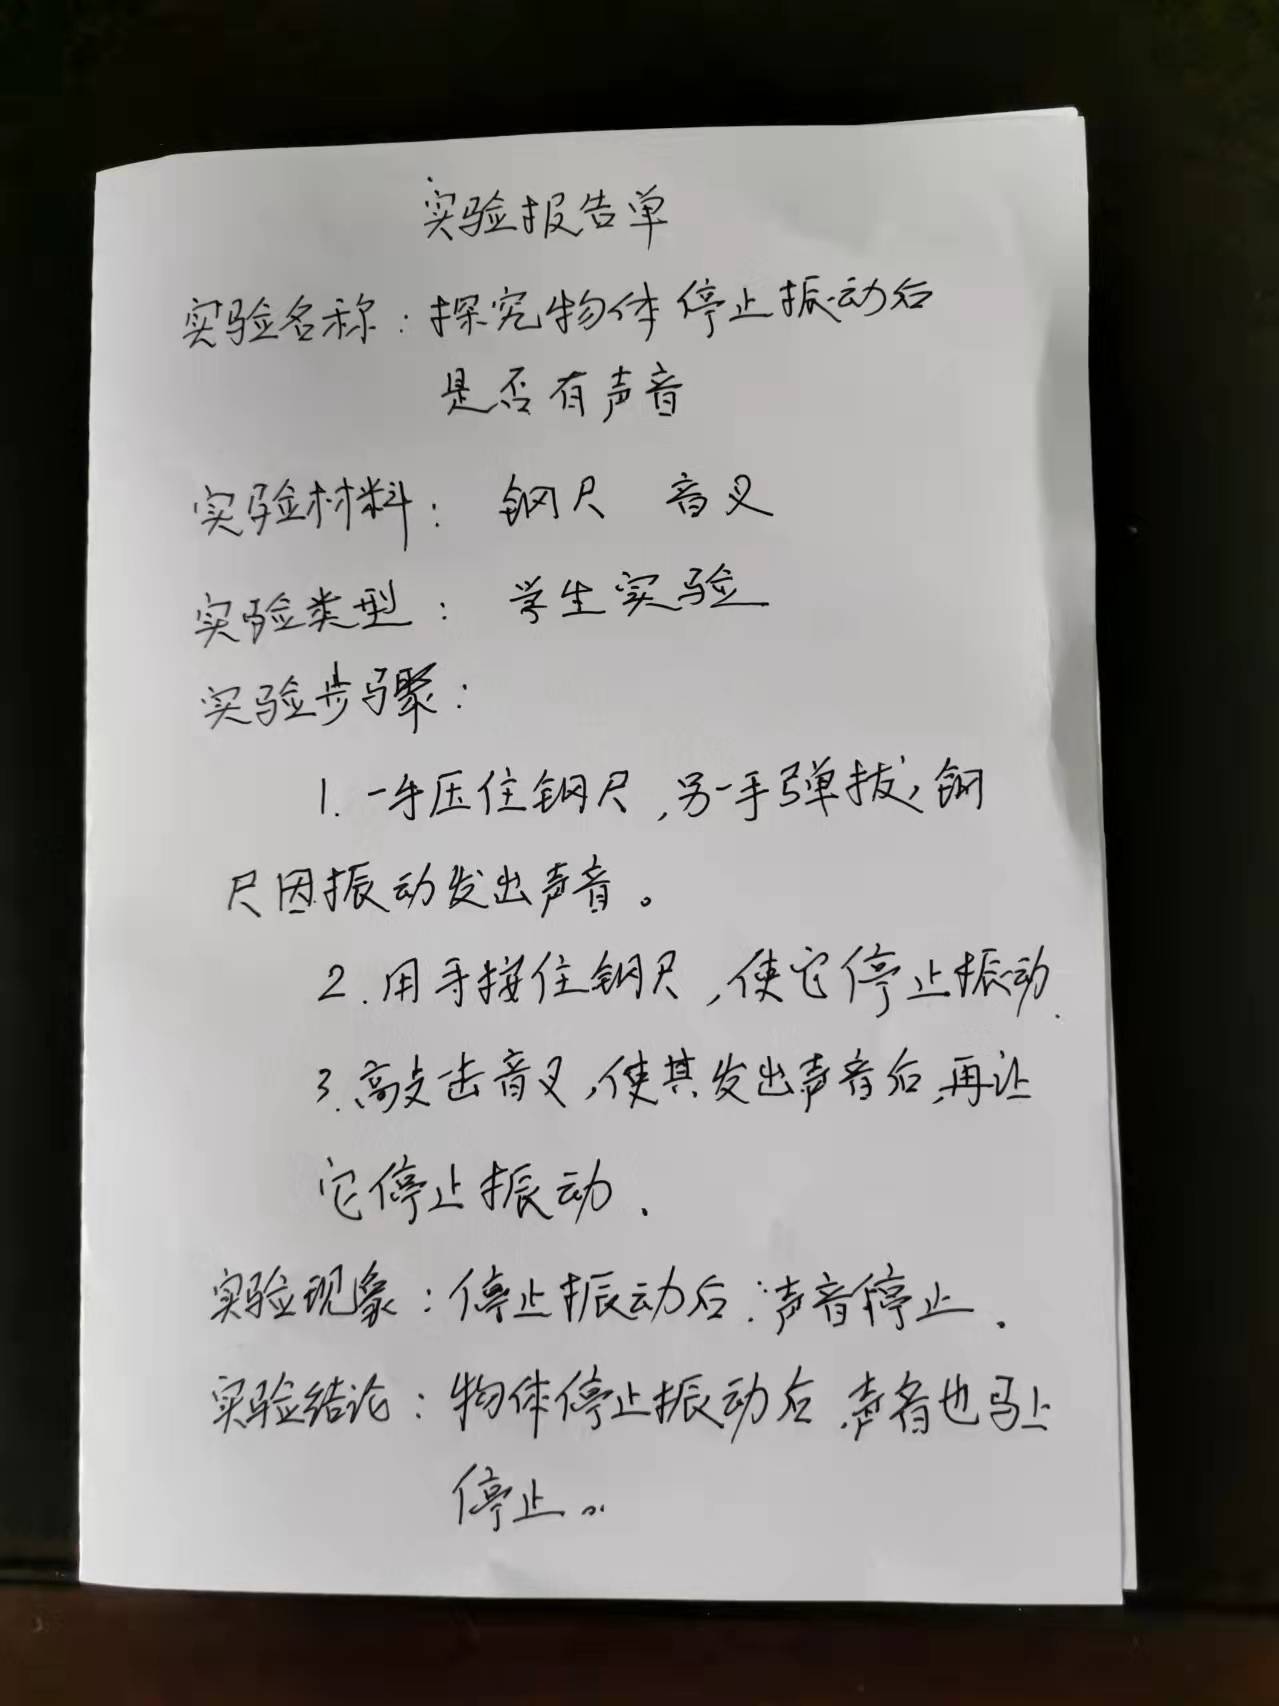 实验报告单
实验名称：探究物体停止振动后
是否有声音
实验材料： 钢尺 音叉
实验类型： 学生实验
实验步骤：
1. 一手压住钢尺，另一手弹拔，钢
尺因振动发出声音。
2. 用手按住钢尺，使它停止振动.
3. 敲击音叉，使其发出声音后，再让
它停止振动.
实验现象：停止振动后，声音停止.
实验结论：物体停止振动后，声音也马上
停止。